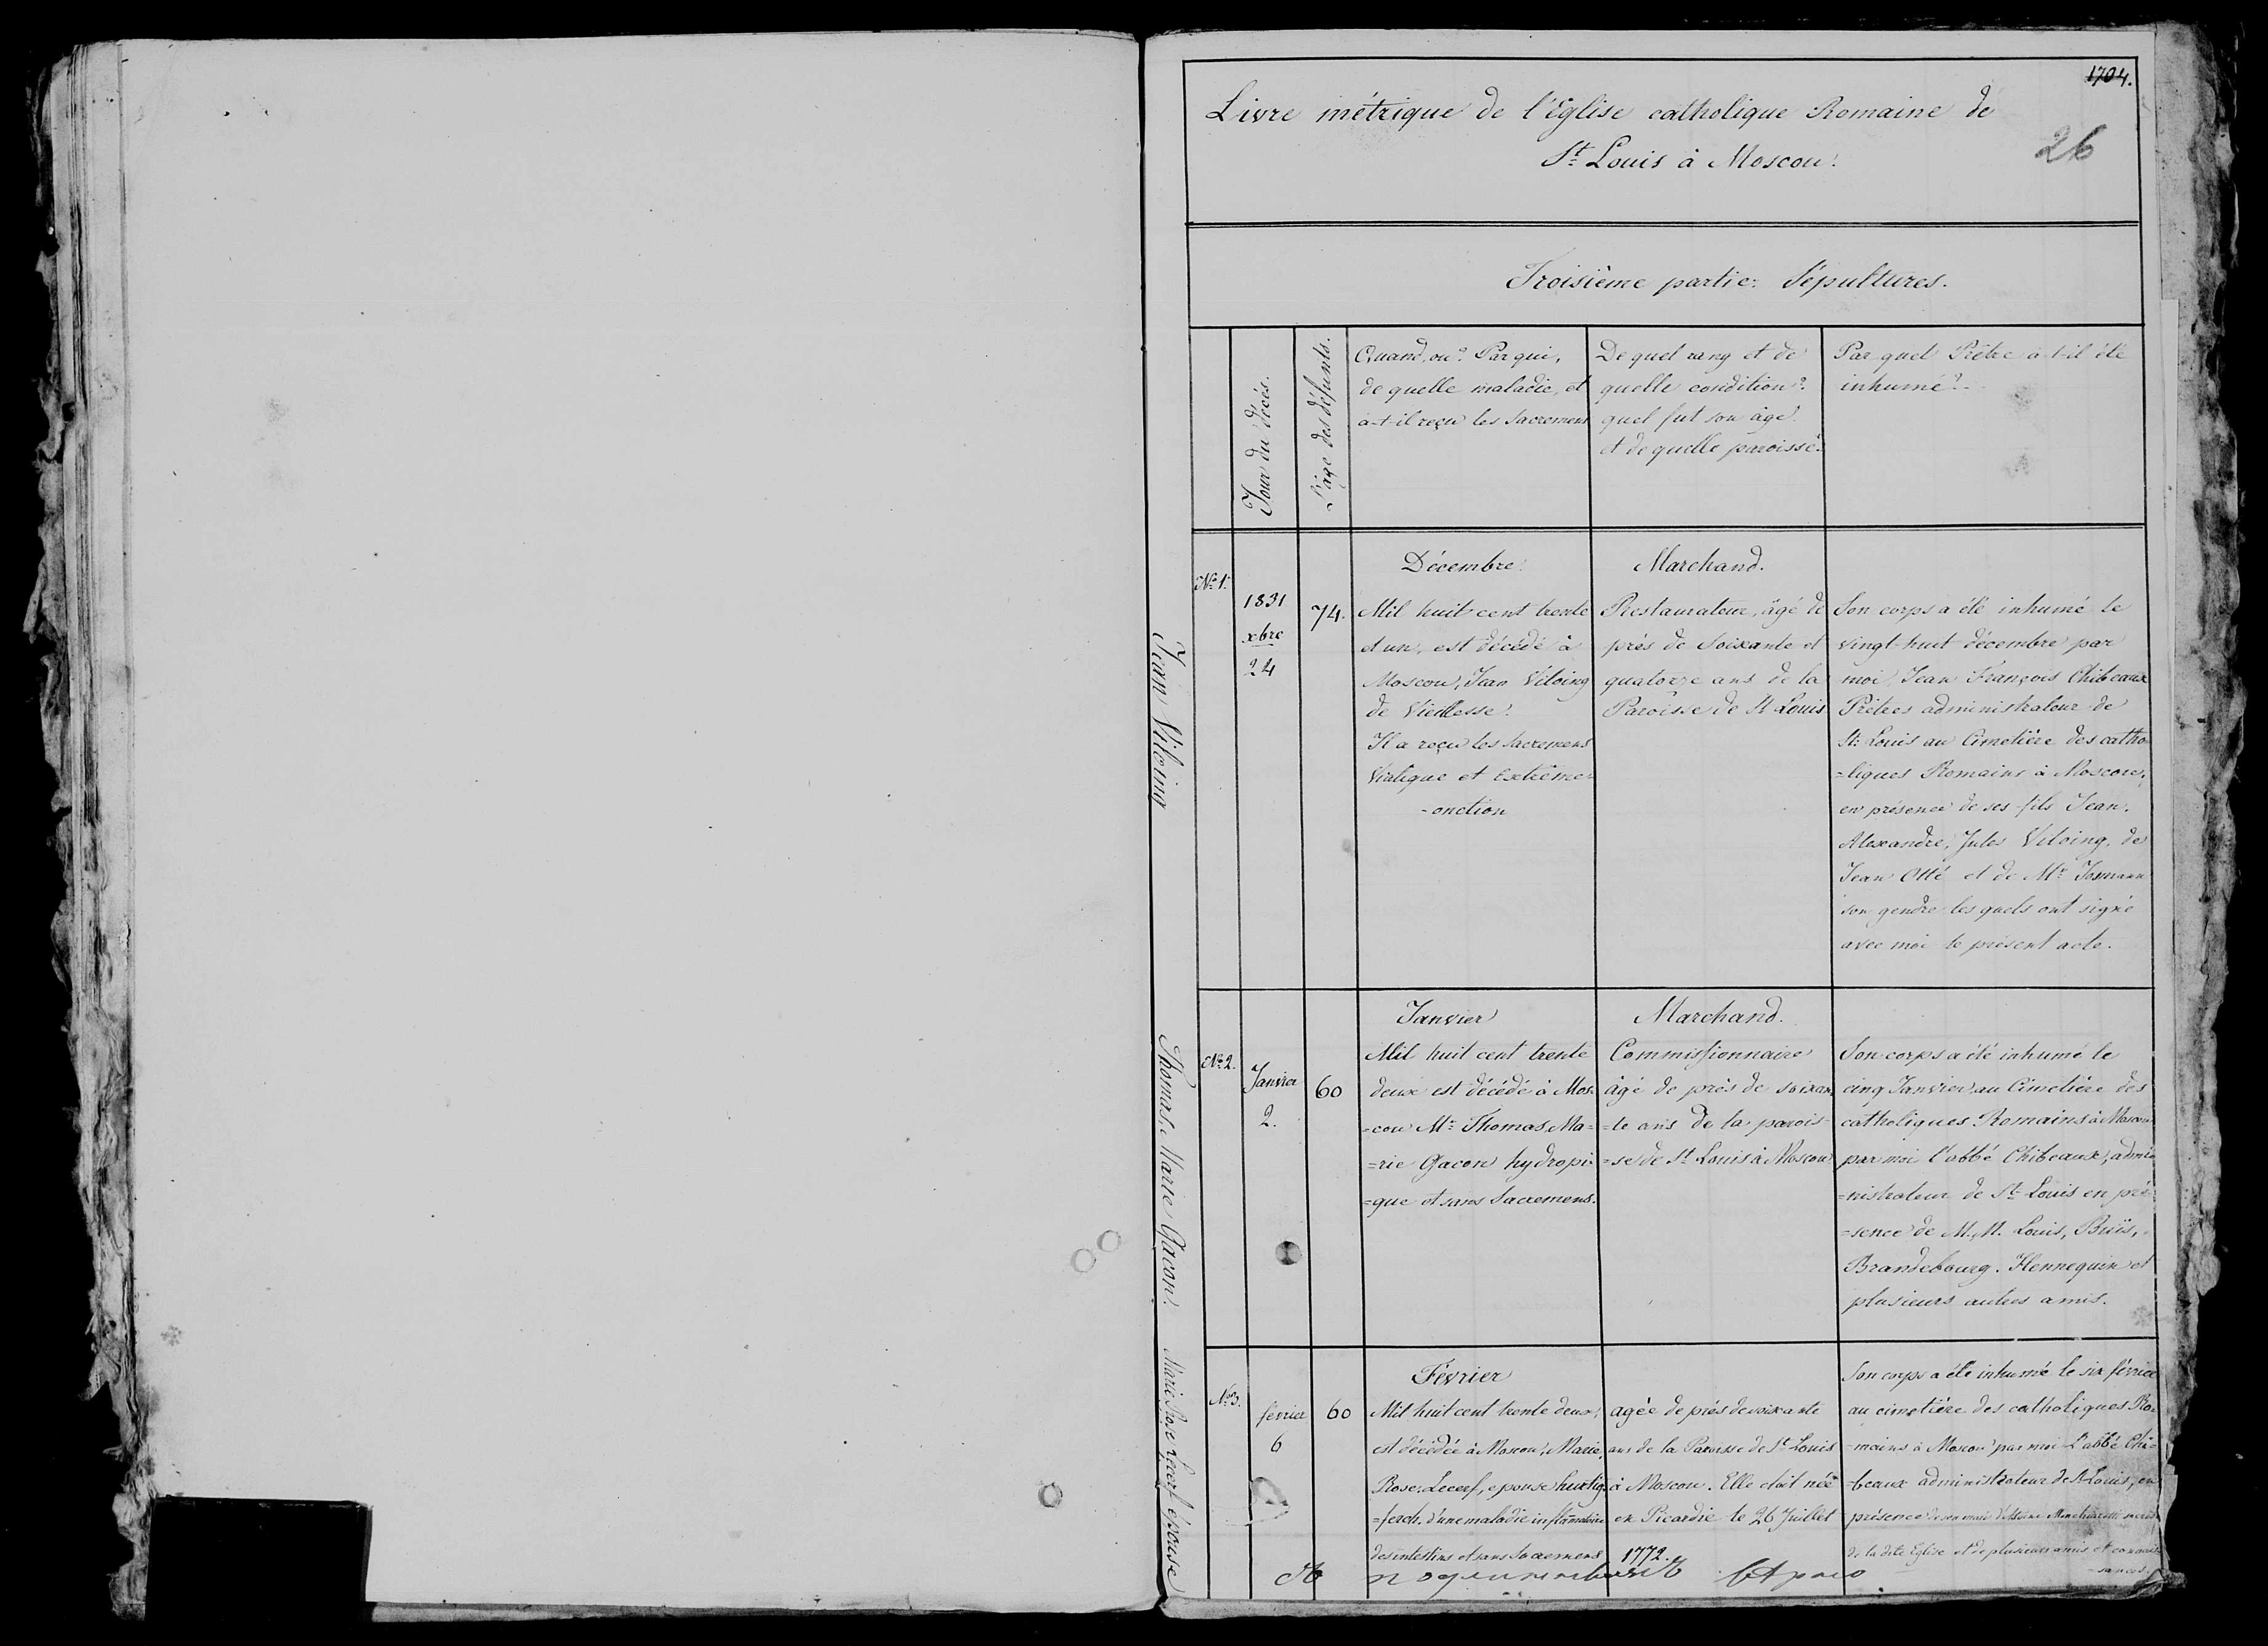 1704.
26
Livre métrique de l'église catholique Romaine de
St Louis à Moscou.
Troisième partie: Sépultures.
Jour du décès.
L'âge des défunts.
Quand, ou? Par qui,
de quelle maladie, et
a-t-il reçu les Sacremens
De quel rang et de
quelle condition?
quel fut son âge
et de quelle paroisse?
Par quel Prêtre a-t-il été
inhumé?
Jean Viloing
No 1.
1831
xbre
24
74.
Décembre.
Mil huit cent trente
et un, est décédé à
Moscou, Jean Viloing
de Vieillesse.
Il a reçu les Sacremens
Viatique et Extrême-
-onction
Marchand.
Restaurateur, âgé de
près de Soixante et
quatorze ans de la
Paroisse de St Louis
Son corps a été inhumé le
vingt-huit décembre par
moi, Jean François Chibeaux
Prêtres administrateur de
St: Louis au Cimetière des catho-
=liques Romains à Moscou,
en présence de ses fils Jean,
Alexandre, Jules Viloing, de
Jean Otté et de Mr
son gendre les quels ont signé
avec moi le présent acte.
Thomas, Marie Gacon.
No 2.
Janvier
2.
60
Janvier
Mil huit cent trente
deux est décédé à Mos-
=cou Mr Thomas, Ma-
=rie Gacon hydropi-
=que et sans Sacremens.
Marchand.
Commissionnaire
âgé de près de soixan
=te ans de la parois-
=se de St Louis à Moscou
Son corps a été inhumé le
cinq Janvier, au Cimetière des
catholiques Romains à Moscou
par moi l'abbé Chibeaux, admi-
=nistrateur de St Louis en pré-
=sence de M. M. Louis, Buïs,
Brandebourg, Hennequin et
plusieurs autres amis.
Marie, Rose Lecerf épouse
No 3.
février
6
60
Février
Mil huit cent trente deux,
est décédée à Moscou, Marie,
Rose, Lecerf, epouse
=ferch. d'une maladie inflamatoire
des intestins et sans Sacremens
agée de près de soixante
ans de la Paroisse de St Louis
à Moscou. Elle était née
en Picardie le 26 Juillet
1772.
Son corps a été inhumé le six février
au cimetière des catholiques Ro-
-mains à Moscou par moi L'abbé Chi-
-beaux administrateur de St Louis, en
présence de son mari
de la dite Eglise et de plusieurs amis et connais-
-sances.